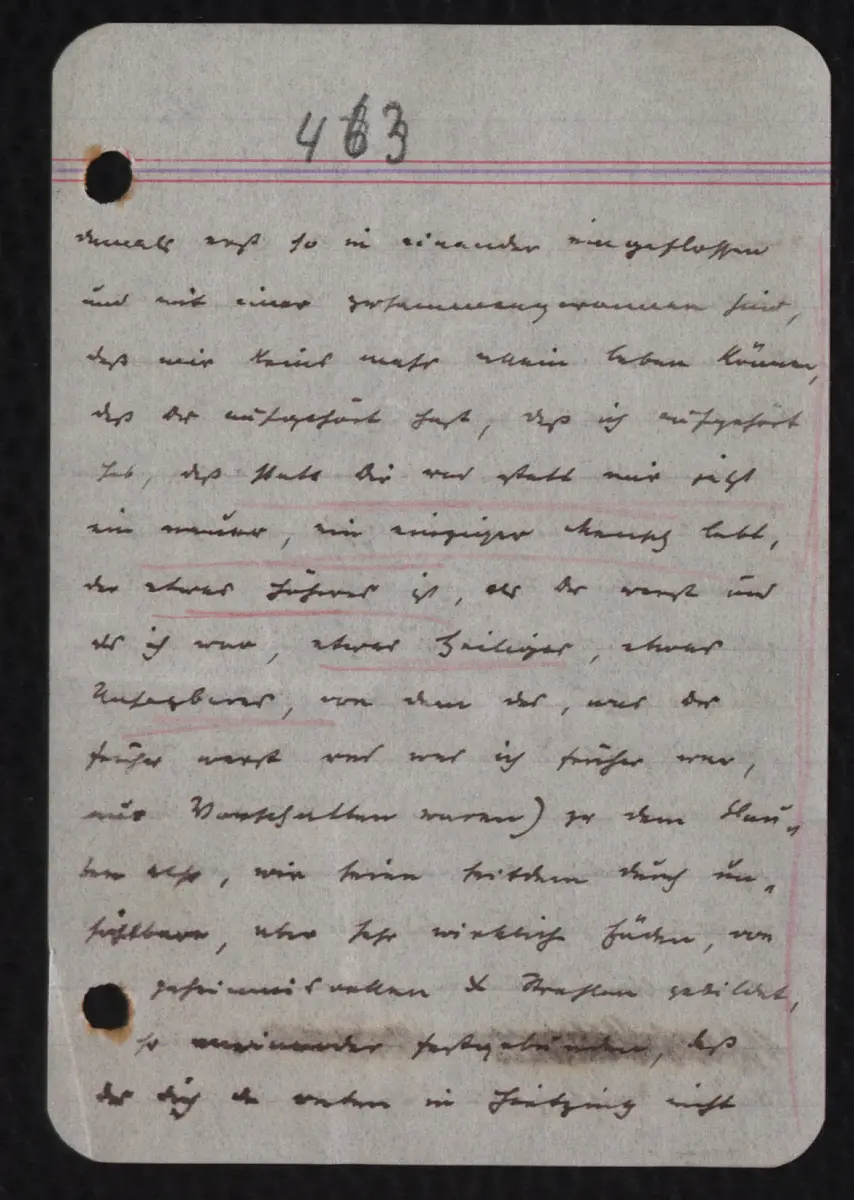 463
damals erst so in einander eingeflossen
und mit einer zusammengeronnen sind,
daß wir keins mehr allein leben können,
daß Du aufgehört hast, daß ich aufgehört
hab, daß statt Dir und statt mir jetzt
ein neuer, ein einziger Mensch lebt,
der etwas Höheres ist, als Du warst und
als ich war, etwas Heiliges, etwas
Unsagbares, von dem das, was Du
früher warst und was ich früher war,
nur Vorschatten waren) zu dem Glau-
ben also, wir seien seitdem durch un-
fühlbare, aber sehr wirkliche Fäden, von
geheimnisvollen X Strahlen gebildet,
so aneinander festgebunden, daß
der Dich da unten in Hietzing nicht